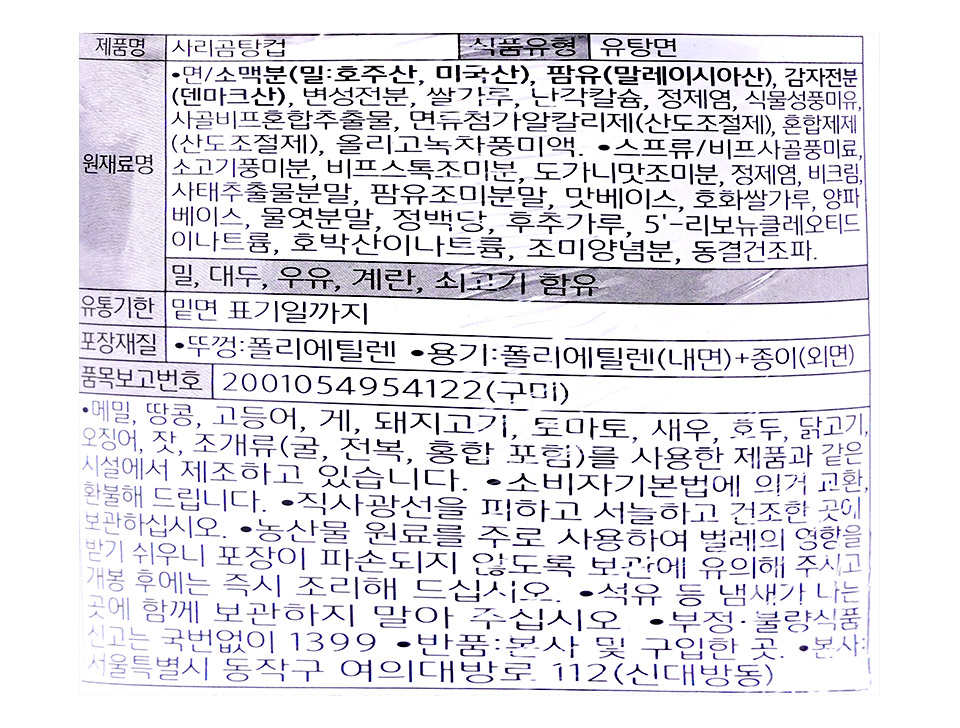 제품명 사리곰탕컵 식품유형 유탕면
원재료명
•면/소맥분(밀:호주산, 미국산), 팜유(말레이시아산), 감자전분
(덴마크산), 변성전분, 쌀가루, 난각칼슘, 정제염, 식물성풍미유,
사골비프혼합추출물, 면류첨가알칼리제(산도조절제), 혼합제제
(산도조절제), 올리고녹차풍미액. •스프류/비프사골풍미료,
소고기풍미분, 비프스톡조미분, 도가니맛조미분, 정제염, 비크림,
사태추출물분말, 팜유조미분말, 맛베이스, 호화쌀가루, 양파
베이스, 물엿분말, 정백당, 후추가루, 5'-리보뉴클레오티드
이나트륨, 호박산이나트륨, 조미양념분, 동결건조파.
밀, 대두, 우유, 계란, 쇠고기 함유
유통기한 밑면 표기일까지
포장재질 •뚜껑:폴리에틸렌 •용기:폴리에틸렌(내면)+종이(외면)
품목보고번호 2001054954122(구미)
•메밀, 땅콩, 고등어, 게, 돼지고기, 토마토, 새우, 호두, 닭고기,
오징어, 잣, 조개류(굴, 전복, 홍합 포함)를 사용한 제품과 같은
시설에서 제조하고 있습니다. •소비자기본법에 의거 교환,
환불해 드립니다. •직사광선을 피하고 서늘하고 건조한 곳에
보관하십시오. •농산물 원료를 주로 사용하여 벌레의 영향을
받기 쉬우니 포장이 파손되지 않도록 보관에 유의해 주시고
개봉 후에는 즉시 조리해 드십시오. •석유 등 냄새가 나는
곳에 함께 보관하지 말아 주십시오 •부정·불량식품
신고는 국번없이 1399 •반품:본사 및 구입한 곳. •본사:
서울특별시 동작구 여의대방로 112(신대방동)